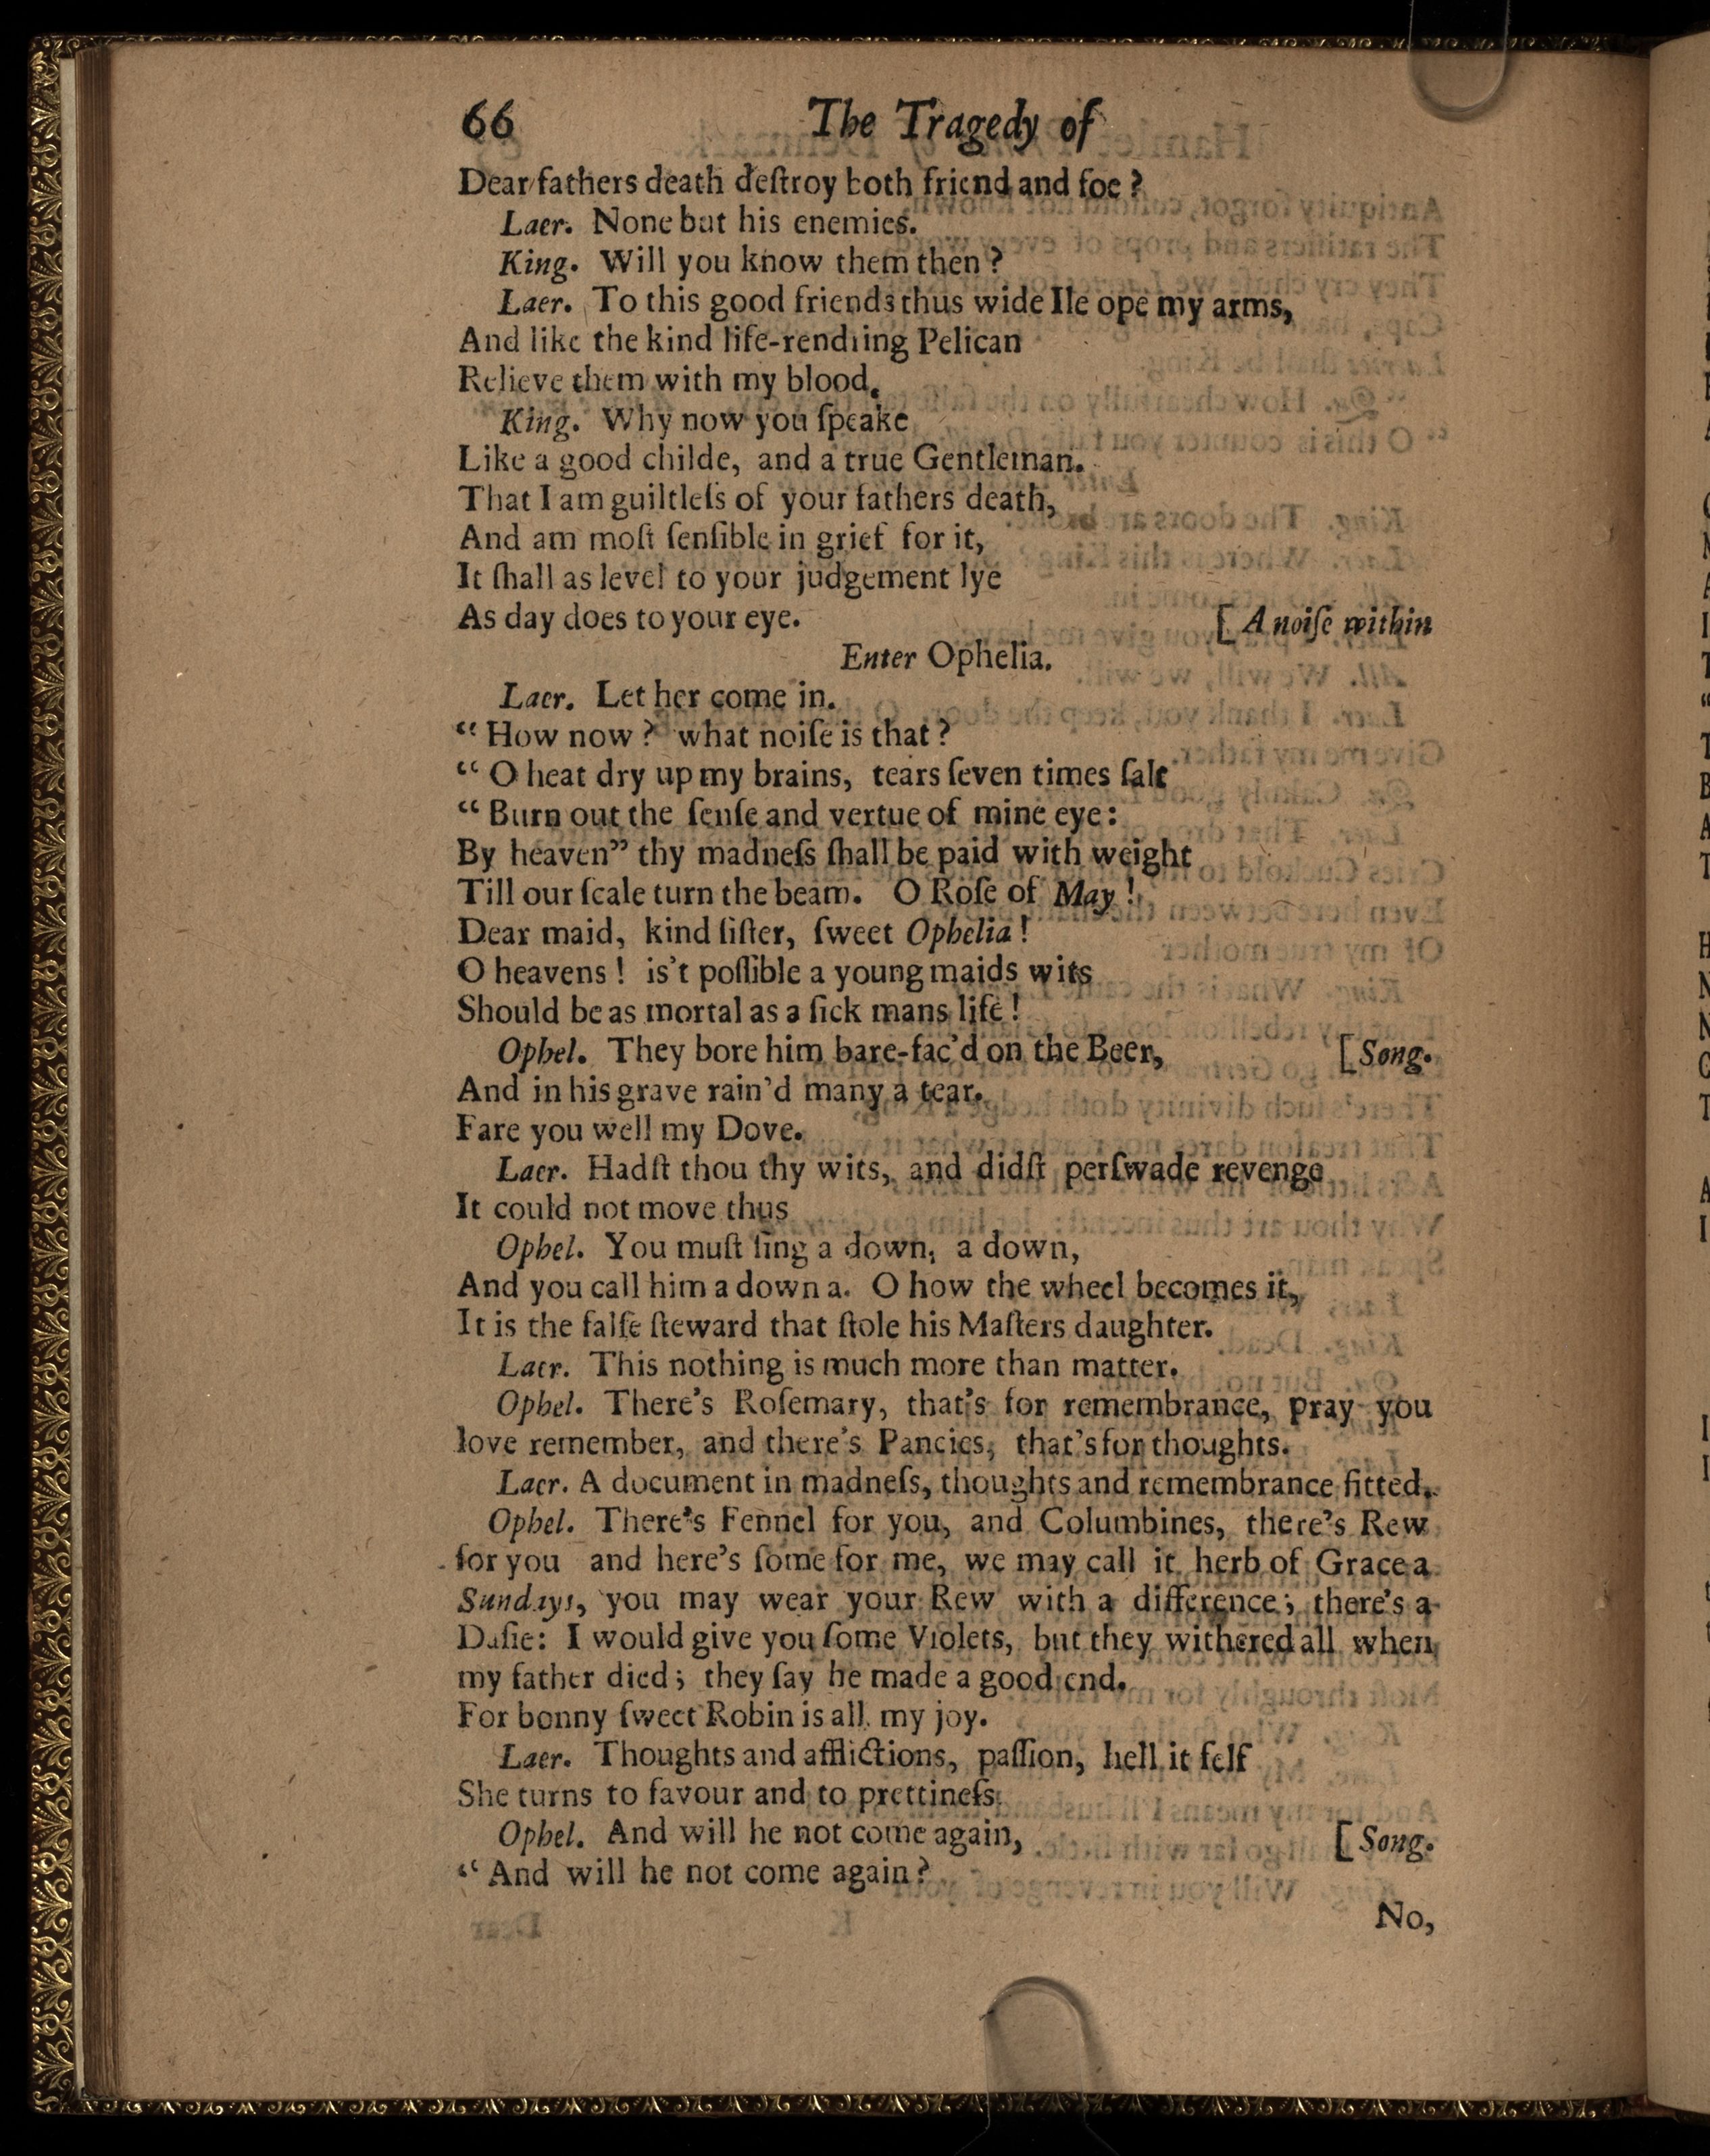 66 The Tragedy of
Dear fathers death deſtroy both friend and foe?
Laer. None but his enemies.
King. Will you know them then?
Laer. To this good friends thus wide Ile ope my arms,
And like the kind life-rendiing Pelican
Relieve them with my blood.
King. Why now you ſpeake
Like a good childe, and a true Gentleman.
That I am guiltleſs of your fathers death,
And am moſt ſenſible in grief for it,
It ſhall as level to your judgement lye
As day does to your eye. [A noiſe within
Enter Ophelia.
Laer. Let her come in.
“ How now? what noiſe is that?
“ O heat dry up my brains, tears ſeven times ſalt
“ Burn out the ſenſe and vertue of mine eye:
By heaven” thy madneſs ſhall be paid with weight
Till our ſcale turn the beam. O Roſe of May!
Dear maid, kind ſiſter, ſweet Ophelia!
O heavens! is't poſſible a young maids wits
Should be as mortal as a ſick mans life!
Ophel. They bore him bare-fac'd on the Beer, [Song.
And in his grave rain'd many a tear.
Fare you well my Dove.
Laer. Hadſt thou thy wits, and didſt perſwade revenge
It could not move thus
Ophel. You muſt ſing a down, a down,
And you call him a down a. O how the wheel becomes it,
It is the falſe ſteward that ſtole his Maſters daughter.
Laer. This nothing is much more than matter.
Ophel. There's Roſemary, that's for remembrance, pray you
love remember, and there's Pancies, that's for thoughts.
Laer. A document in madneſs, thoughts and remembrance fitted.
Ophel. There's Fennel for you, and Columbines, there's Rew
for you and here's ſome for me, we may call it herb of Grace a
Sundays, you may wear your Rew with a difference; there's a
Daſie: I would give you ſome Violets, but they withered all when
my father died; they ſay he made a good end.
For bonny ſweet Robin is all my joy.
Laer. Thoughts and afflictions, paſſion, hell it ſelf
She turns to favour and to prettineſs.
Ophel. And will he not come again, [Song.
“ And will he not come again?
No,